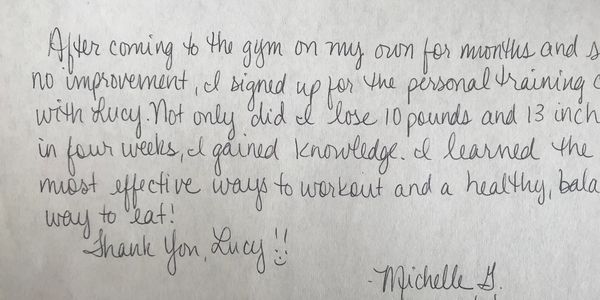 After coming to the gym on my own for months and s
no improvement, I signed up for the personal training c
with Lucy. Not only did I lose 10 pounds and 13 inch
in four weeks, I gained knowledge. I learned the
most effective ways to workout and a healthy, bala
way to eat!
Thank You, Lucy!!
-Michelle G.